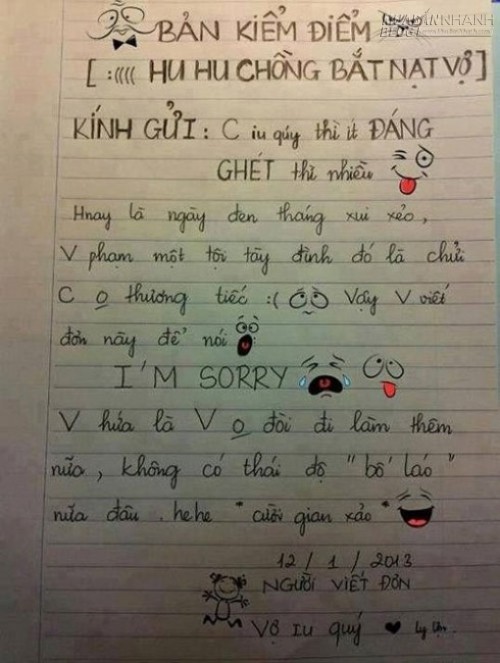 BẢN KIỂM ĐIỂM
[ :(((( HU HU CHỒNG BẮT NẠT VỢ ]
KÍNH GỬI : C iu qúy thì ít ĐÁNG
GHÉT thì nhiều
Hnay là ngày đen tháng xui xẻo,
V phạm một tội tày đình đó là chửi
C o thương tiếc :( Vậy V viết
đơn này để nói
I'M SORRY
V hứa là V o đòi đi làm thêm
nữa, không có thái độ "bố láo"
nữa đâu. hehe * cười gian xảo *
12 / 1 / 2013
NGƯỜI VIẾT ĐƠN
Vợ Iu quý ♥